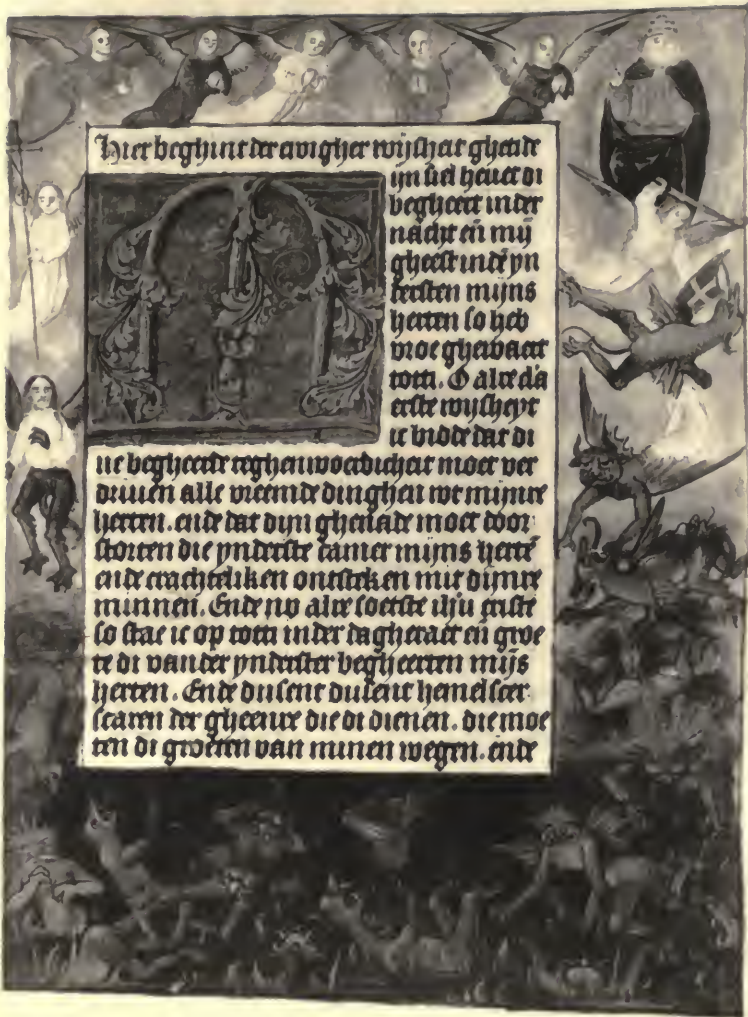 Hier beghint der ewigher wijsheit ghetide
M
ijn siel heuet di
begheert inder
nacht en̄ mij
gheest indē yn
tersten mijns
herten so heb
vroe ghewaect
totti. O alre da
erste wijsheyt
ic bidde dat di
ne begheerde teghenwoerdicheit moet ver
driuen alle vreemde dinghen wt mijnre
herten. ende dat dijn ghenade moet door
storten die ynderste camer mijns hertē
ende crachteliken ontsteken mit dijnre
minnen. Ende nv alre soetste ihū criste
so stae ic op totti inder dagheraet en̄ groe
te di vander ynderster begheerten mijs
herten. Ende dusent dusent hemelscer
scaren der gheenre die di dienen. die moe
ten di groeten van minen wegen. ende